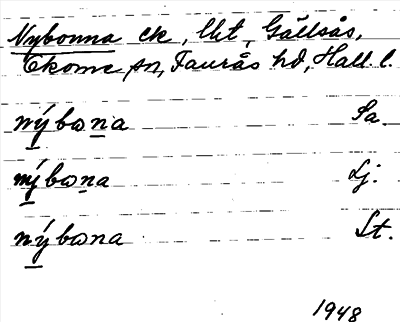 Nybonna ek, Uht, Gällsås,
Ekome sn, Faurås hd, Hall. l.
nýbωna Sa.
nýbωna Lj.
nýbωna St.
1948